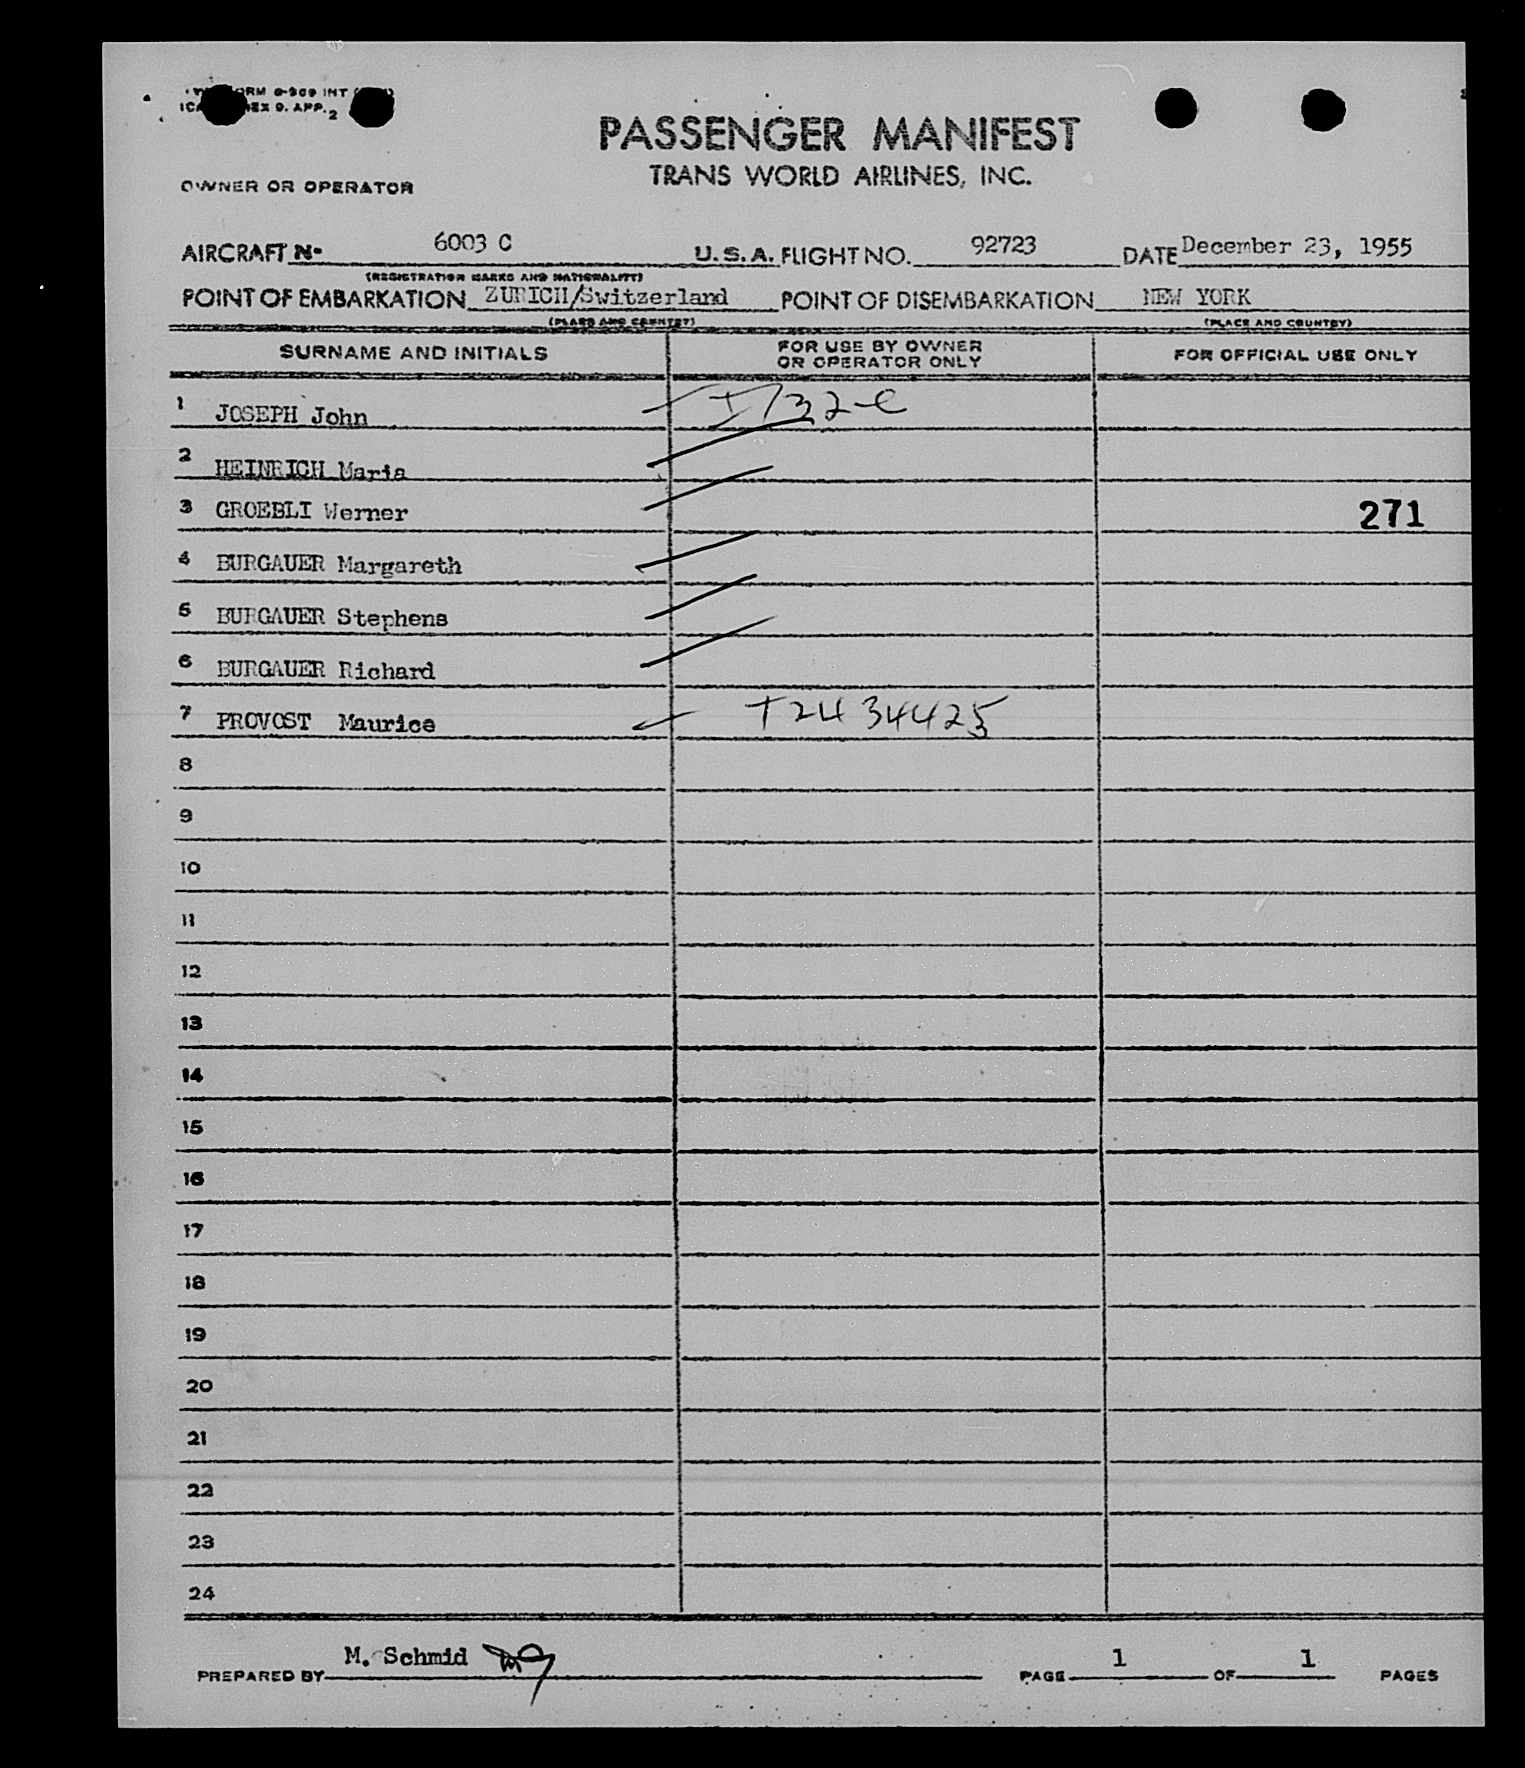 FORM 0-909 INT
ANNEX 9. APP. 2
PASSENGER MANIFEST
TRANS WORLD AIRLINES, INC.
OWNER OR OPERATOR
AIRCRAFT No 6003 C U.S.A. FLIGHT NO. 92723 DATE December 23, 1955
(REGISTRATION MARKS AND NATIONALITY)
POINT OF EMBARKATION ZURICH/Switzerland POINT OF DISEMBARKATION NEW YORK
(PLACE AND COUNTRY) (PLACE AND COUNTRY)
SURNAME AND INITIALS FOR USE BY OWNER OR OPERATOR ONLY FOR OFFICIAL USE ONLY
1 JOSEPH John
2 HEINRICH Maria
3 GROEBLI Werner 271
4 BURGAUER Margareth
5 BURGAUER Stephens
6 BURGAUER Richard
7 PROVOST Maurice T2434425
8
9
10
11
12
13
14
15
16
17
18
19
20
21
22
23
24
PREPARED BY M. Schmid PAGE 1 OF 1 PAGES